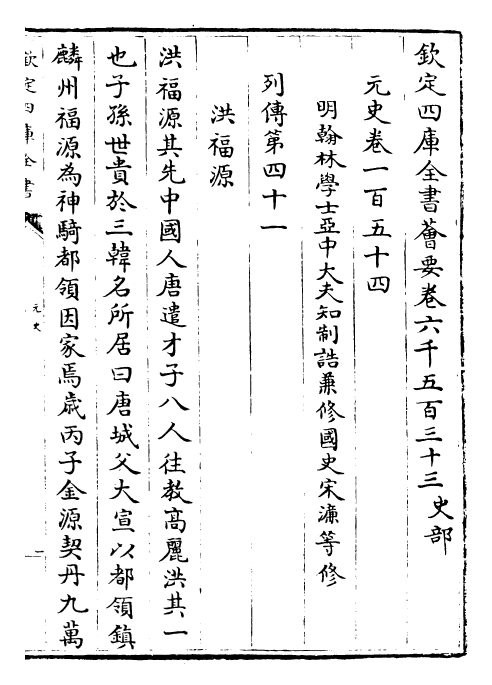 欽定四庫全書薈要卷六千五百三十三 史部
元史卷一百五十四
明翰林學士亞中大夫知制誥兼修國史宋濂等修
列傳第四十一
洪福源
洪福源其先中國人唐遣才子八人往教高麗洪其一
也子孫世貴於三韓名所居曰唐城父大宣以都領鎮
麟州福源為神騎都領因家焉歳丙子金源契丹九萬
欽定四庫全書
元史
一